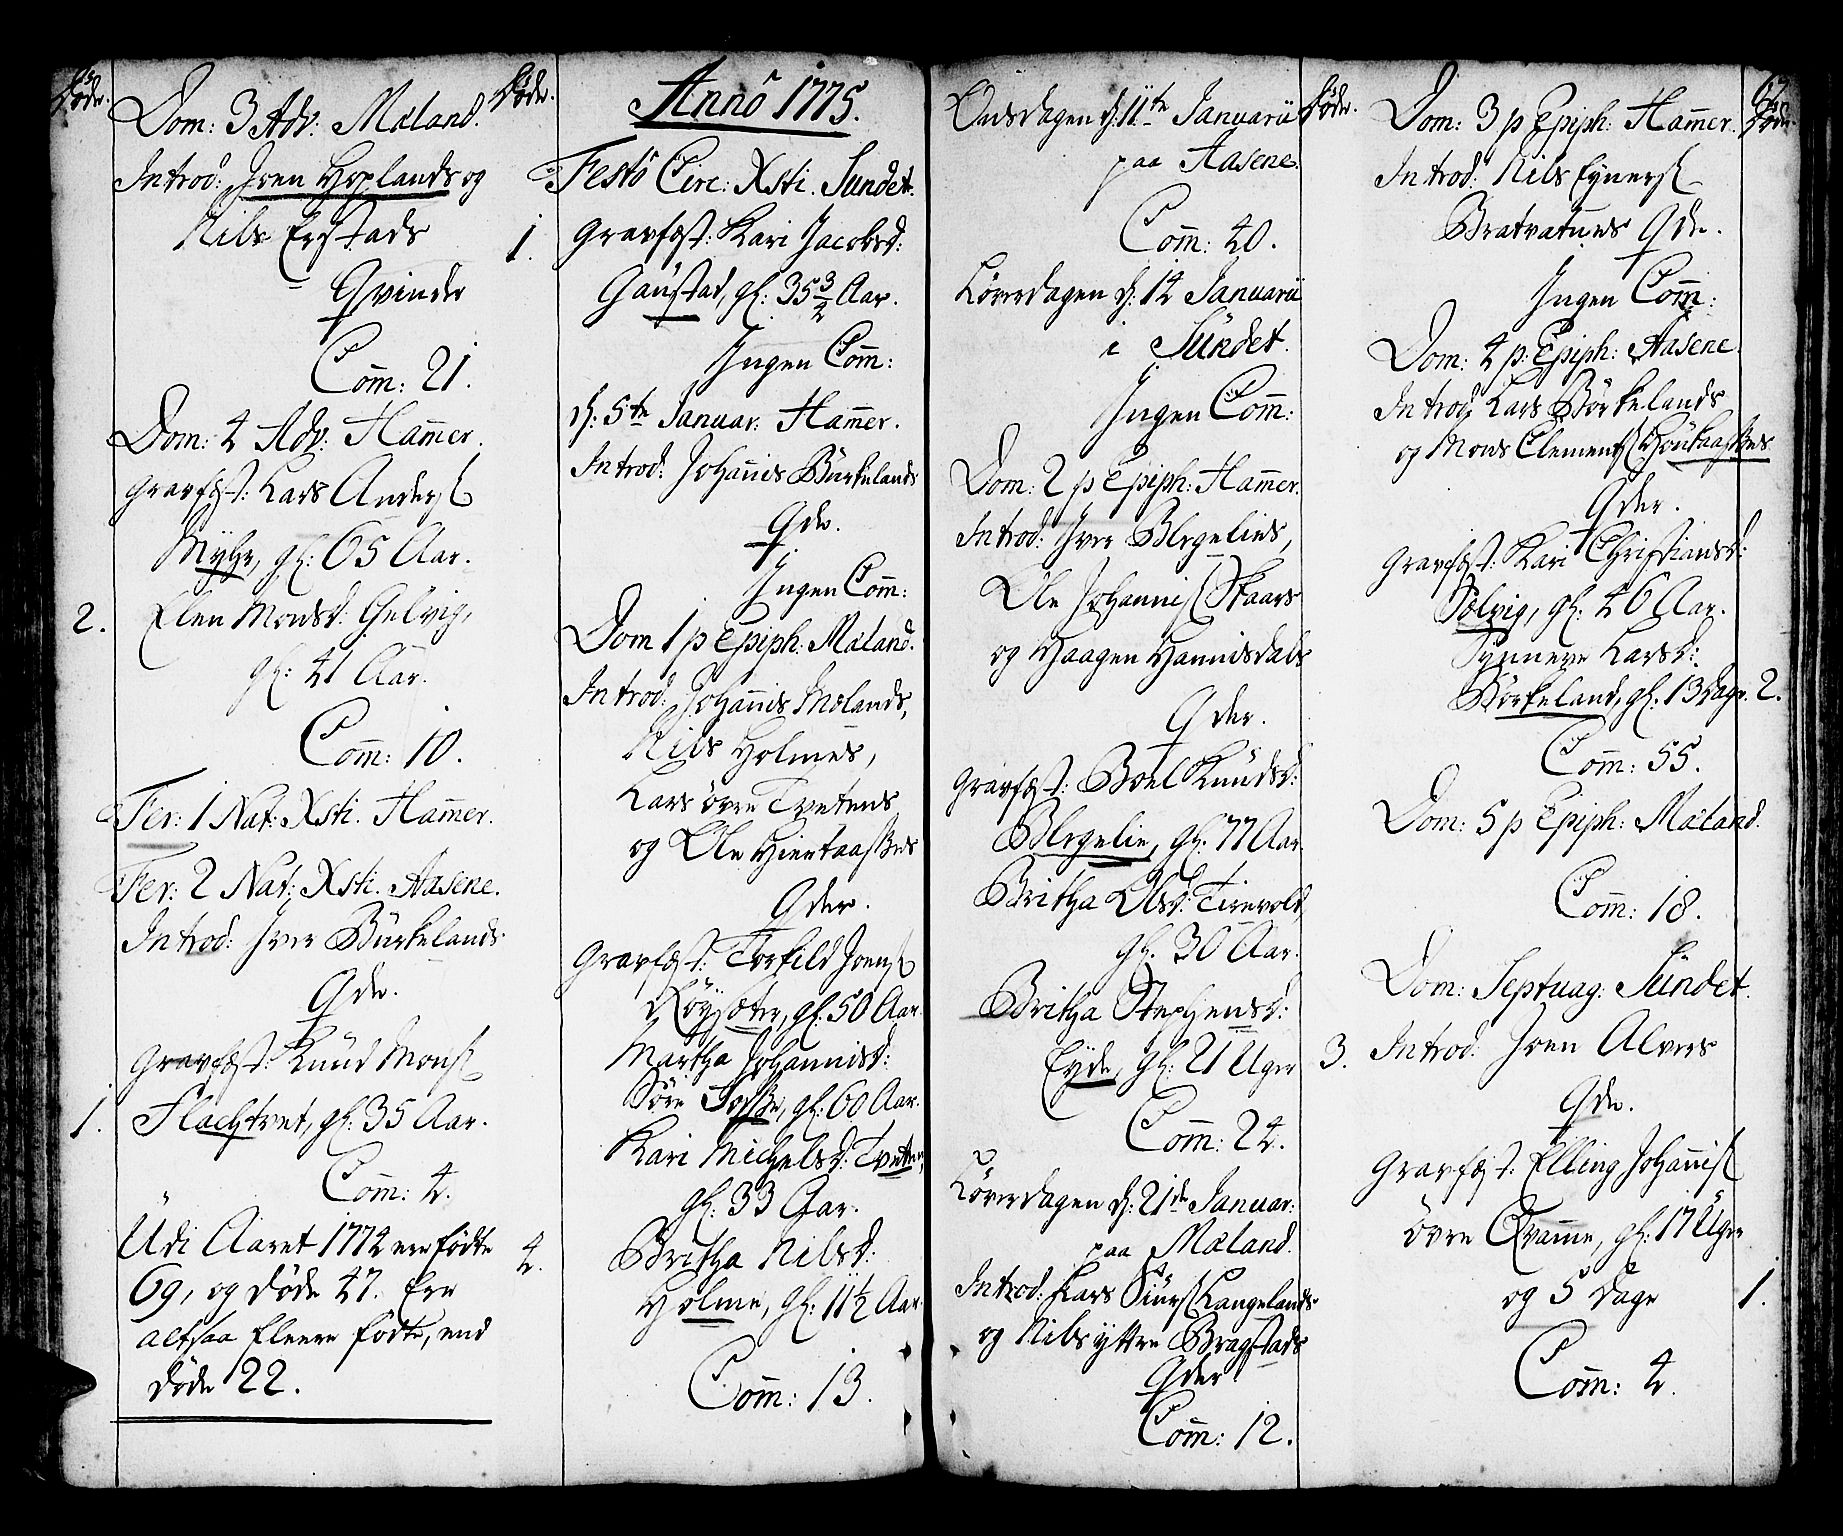 Døde.
Dom: 3 Adv: Mæland.
Introd: Joen Hoplands og
Nils Erstads
Qvinder
Com̄: 21.
Dom: 4 Adv: Ham̄er.
Gravfæst: Lars Anders
Myhr, gl: 65 Aar.
2. Elen Monsd: Gelvig,
gl: 41 Aar.
Com̄: 10.
Fer: 1 Nat: Xsti. Ham̄er.
Fer: 2 Nat: Xsti. Aasene.
Introd: Iver Bürkelands
Qde.
Gravfæst: Knud Mons
1. Flachtvet, gl: 35 Aar.
Com̄: 4.
Udi Aaret 1774 ere fødte
69, og døde 47. Ere
altsaa fleere fødte, end
døde 22.
Døde.
Anno 1775.
Festo Circ: Xsti. Sundet.
1. Gravfæst: Kari Jacobsd:
Gaustad, gl: 35 3/4 Aar.
Ingen Com̄:
d: 5te Januar: Ham̄er.
Introd: Johan̄is Bürkelands
Qde.
Ingen Com̄:
Dom 1 p Epiph: Mæland.
Introd: Johan̄is Mælands,
Nils Holmes,
Lars övre Tvetens
og Ole Hiertaasses
Qder.
Gravfæst: Torkild Joens
Röysæter, gl: 50 Aar.
Martha Johannisd:
Söre Fosse, gl: 60 Aar.
Kari Michelsd: Tveten,
gl: 33 Aar.
4. Britha Nilsd:
Holme, gl: 11 1/2 Aar.
Com̄: 13.
Onsdagen d: 11te Januarii
paa Aasene.
Com̄: 40.
Löverdagen d: 14 Januarii
i Sundet.
Ingen Com̄:
Dom: 2 p Epiph: Ham̄er.
Introd: Iver Blegelies,
Ole Johannis Skaars
og Haagen Hannisdals
Qder.
Gravfæst: Boel Knudsd:
Blegelie, gl: 77 Aar.
Britha Olsd: Tirevold,
gl: 30 Aar.
Britha Stephensd:
Eyde, gl: 21 Uger 3.
Com̄: 24.
Löverdagen d: 21de Januar:
paa Mæland.
Introd: Lars Siurs Langelands
og Nils yttre Bragstads
Qder
Com̄: 12.
Døde.
Dom: 3 p Epiph: Ham̄er.
Introd: Nils Eyners
Bratvatnes Qde.
Ingen Com̄:
Dom: 4 p. Epiph: Aasene.
Introd: Lars Börkelands
og Mons Clements Houkaasses
Qder.
Gravfæst: Kari Christiansd:
Sælvig, gl: 46 Aar.
Synneve Larsd:
Börkeland, gl: 13 Dage. 2.
Com̄: 55.
Dom: 5 p Epiph: Mæland.
Com̄: 18.
Dom: Septuag: Sundet.
Introd: Joen Alvers
Qde.
Gravfæst: Elling Johan̄is
övre Qvamme, gl: 17 Uger
og 5 Dage 1.
Com̄: 4.
Døde.